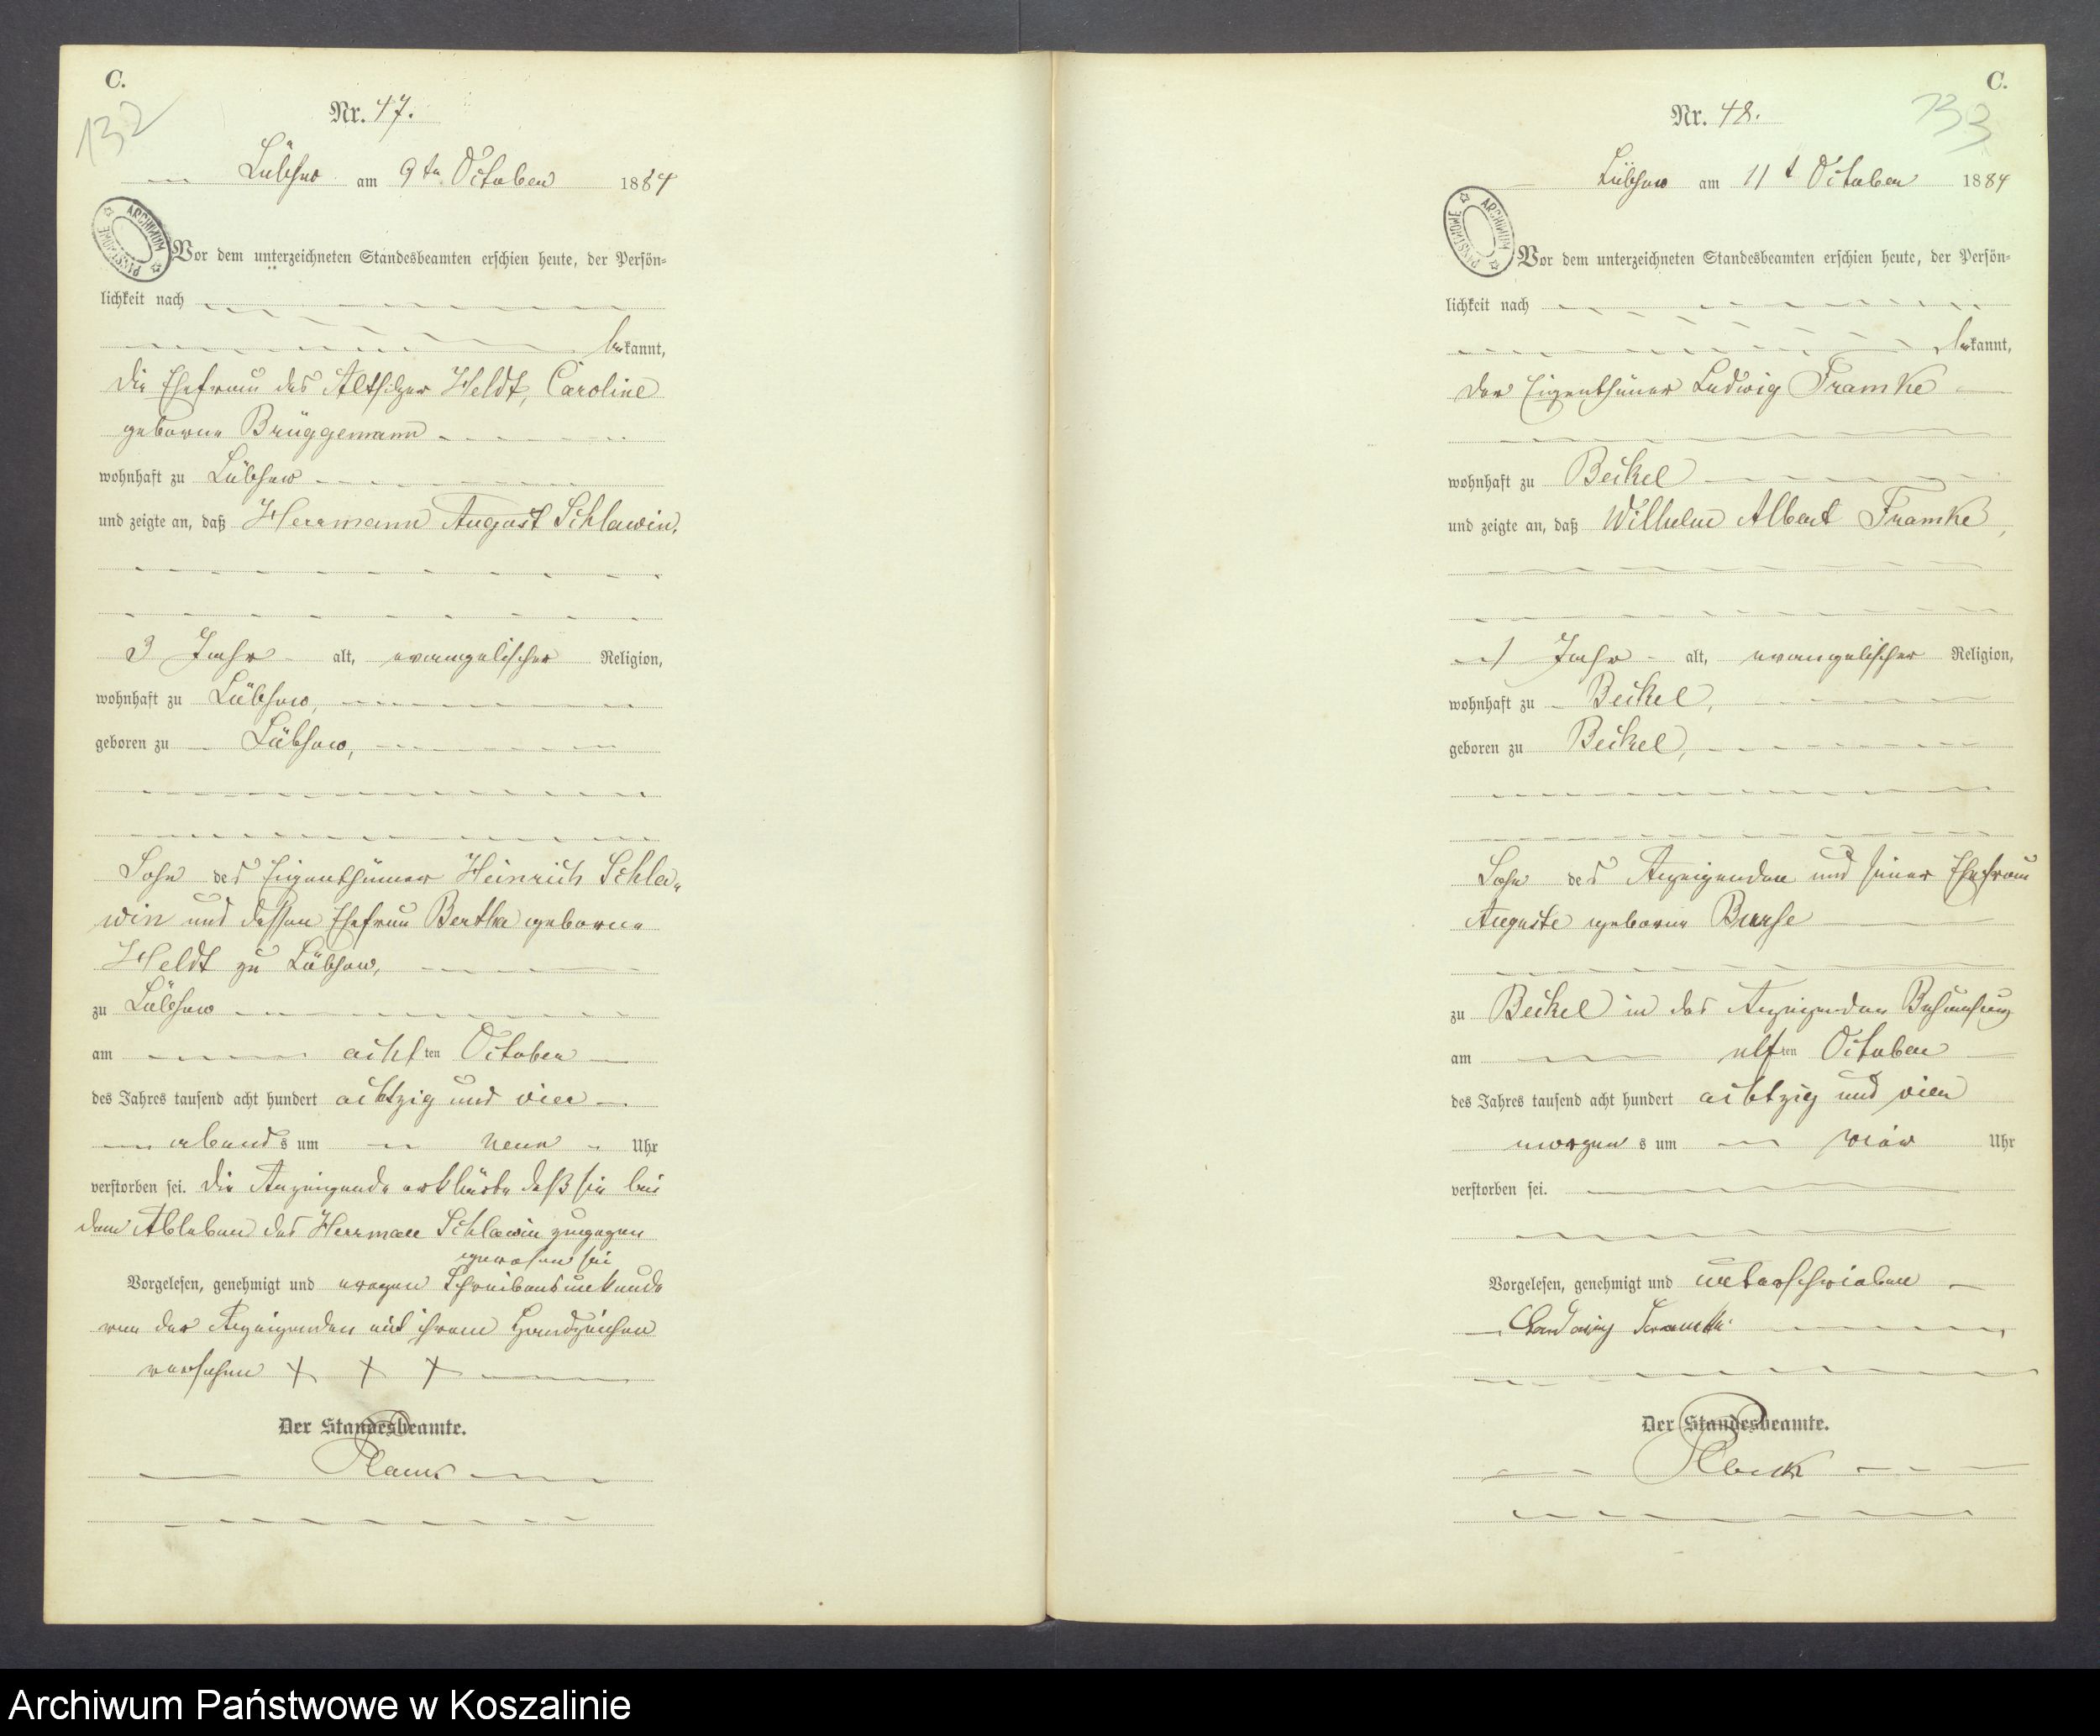 C.
132
Nr. 47.
Lübsow am 9ten October 1884
ARCHIWUM PAŃSTWOWE
Vor dem unterzeichneten Standesbeamten erschien heute, der Persön-
lichkeit nach
bekannt,
die Ehefrau des Altsitzer Heldt, Caroline
geborne Brüggemann
wohnhaft zu Lübsow
und zeigte an, daß Herrmann August Schlawin,
3 Jahr alt, evangelischer Religion,
wohnhaft zu Lübsow,
geboren zu Lübsow,
Sohn des Eigenthümer Heinrich Schla-
win und dessen Ehefrau Bertha geborne
Heldt zu Lübsow,
zu Lübsow
am achten October
des Jahres tausend acht hundert achtzig und vier
abends um neun Uhr
verstorben sei. die Anzeigende erklärte daß sie bei
dem Ableben des Herrmann Schlawin zugegen
gewesen sei
Vorgelesen, genehmigt und wegen Schreibensunkunde
von der Anzeigenden mit ihrem Handzeichen
versehen + + +
Der Standesbeamte.
C.
133
Nr. 48.
Lübsow am 11t October 1884
ARCHIWUM PAŃSTWOWE
Vor dem unterzeichneten Standesbeamten erschien heute, der Persön-
lichkeit nach
bekannt,
der Eigenthümer Ludwig Framke
wohnhaft zu Beikel
und zeigte an, daß Wilhelm Albert Framke,
1 Jahr alt, evangelischer Religion,
wohnhaft zu Beikel,
geboren zu Beikel,
Sohn des Anzeigenden und seiner Ehefrau
Auguste geborne
zu Beikel in des Anzeigenden Behausung
am elften October
des Jahres tausend acht hundert achtzig und vier
morgens um vier Uhr
verstorben sei.
Vorgelesen, genehmigt und unterschrieben
Ludwig Framke
Der Standesbeamte.
Archiwum Państwowe w Koszalinie